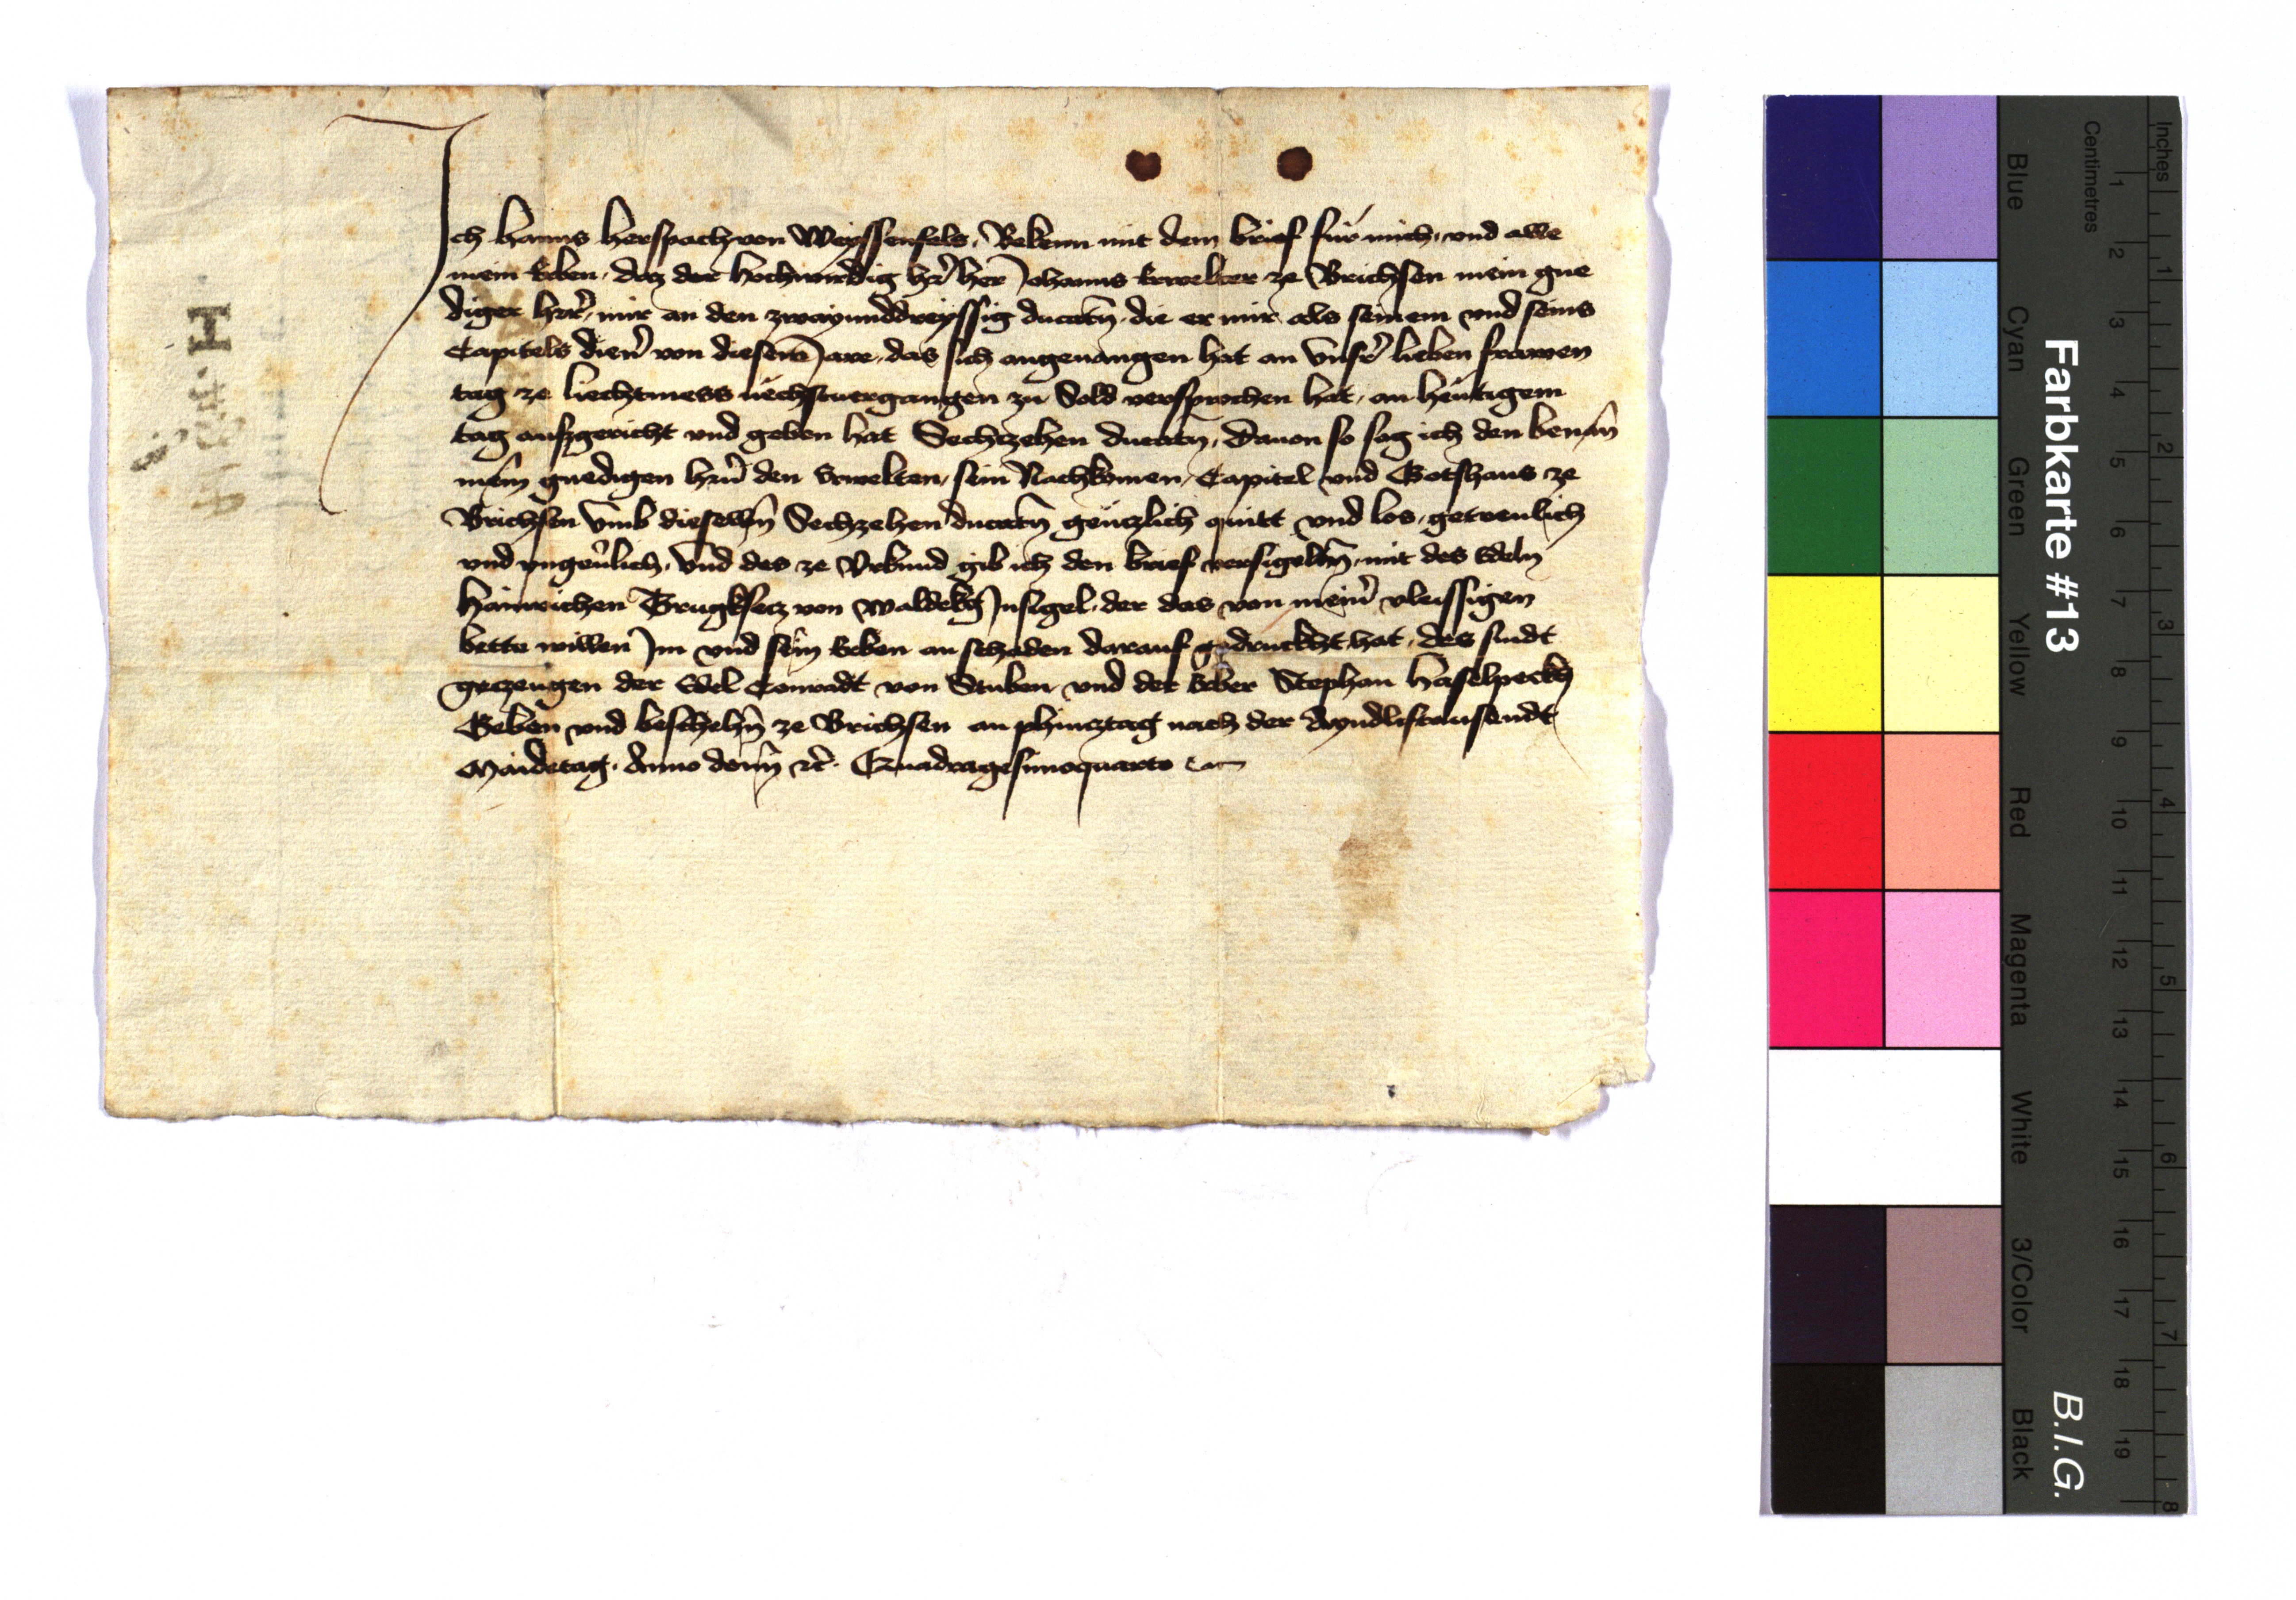 Ich Hanns Herspach von Weyssenfels. Bekenn mit dem brief für mich und alle
mein Erben, daz der Hochwirdig h̄r her Johanns Erwelter ze Brichsen mein gne
diger herr̄, mir an den zwayunddreyssig ducat̄n, die er mir als seinem und seins
Capitels dien̄ von diesem Jare, das sich angeuangen hat an Vnsr̄ lieben frawen
tag ze liechtmess nëchstuergangen zu Sold versprochen hat, an heutigem
tag aufzgericht und geben hat Sechtzehen ducat̄n, Dauon so sag ich den benan̄
mein̄ gnedigen hr̄n den Erwelten, sein Nachkomen, Capitel und Gotshaus ze
Brichsen vmb dieselb̄n Sechzehen ducat̄n gentzlich quitt und los, getreulich
und vngeu̅lich. Vnd des ze Vrkund gib ich den brief versigelt̄n, mit des Edeln
Hainreichen Trugksecz von Waldekg Insigel, der das von mein̄ vleissigen
bette willen Im und sein̄ Erben an schaden darauf gedruckht hat, des sindt
geczeugen der Edel Conradt von Stuben und der Erber Stephan Haselpeckh
Geben und beschehn̄ ze Brichsen an phincztag nach der Ayndliftausendt
Maidetag. Anno domi̅n etc̄. Quadragesimoquarto
H
Farbkarte #13
B.I.G.
Blue
Cyan
Green
Yellow
Red
Magenta
White
3/Color
Black
Centimetres
1
2
3
4
5
6
7
8
9
10
11
12
13
14
15
16
17
18
19
Inches
1
2
3
4
5
6
7
8